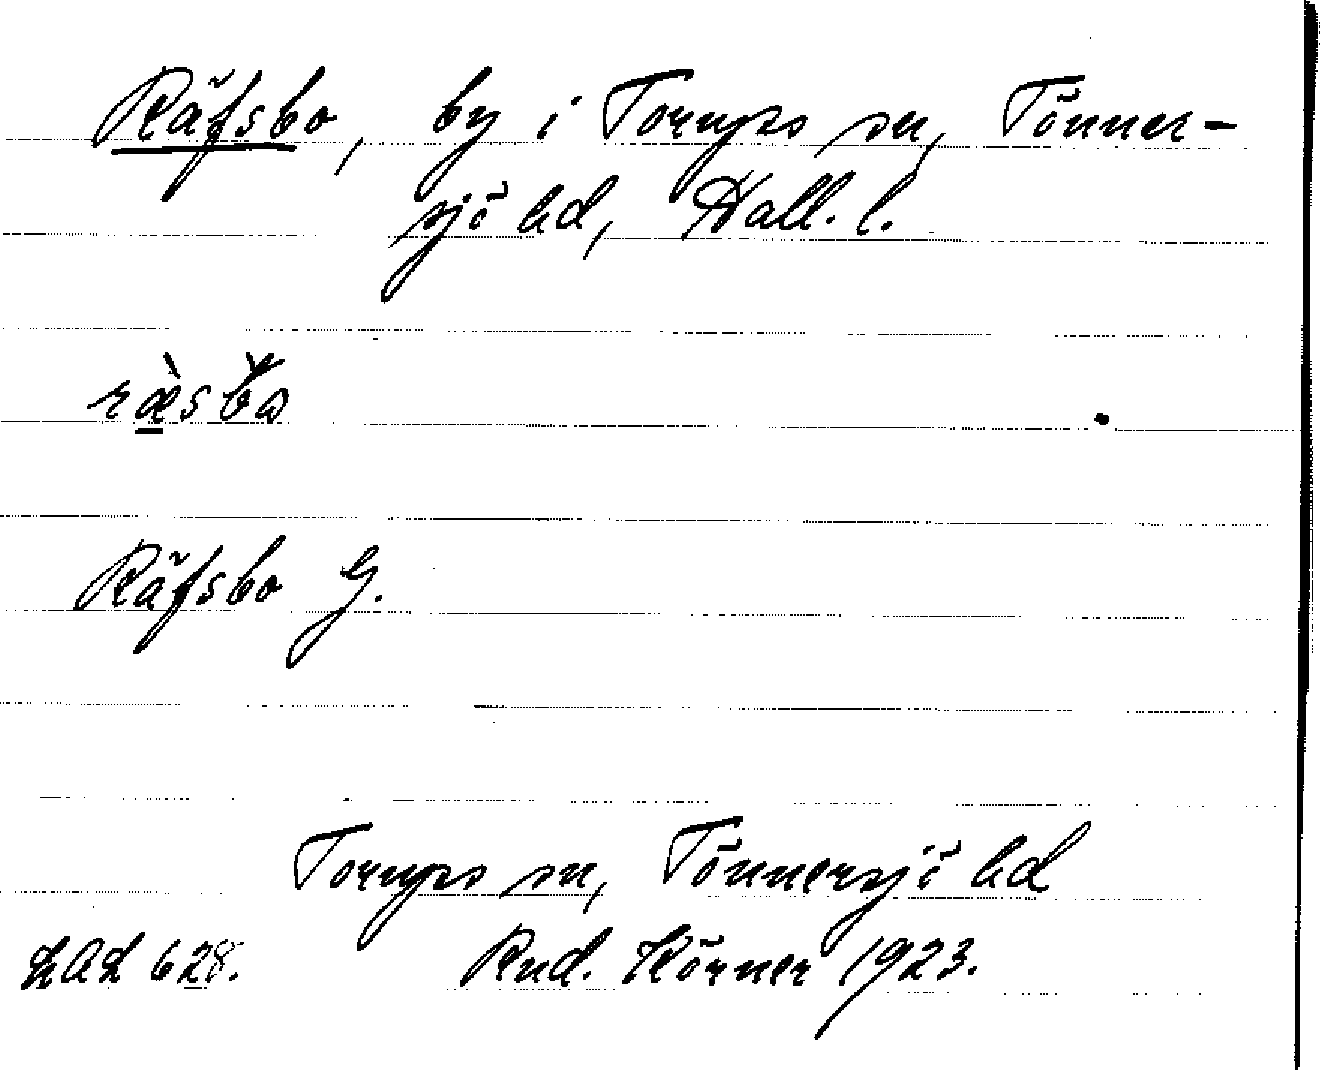 Räfsbo, by i Torups sn, Tönner-
sjö hd, Hall. l.
Räfsbo G.
Torups sn, Tönnersjö hd
LAL 628. Rud. Körner 1923.